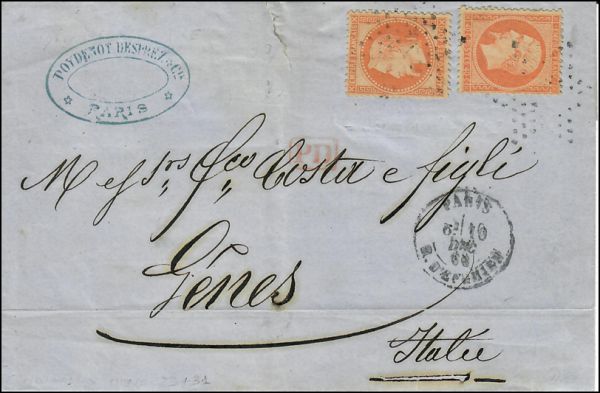 POYDENOT DESPREZ & Cie
PARIS
PD
Mess.rs Fco Costa e figli
Gênes
Italie
PARIS
10
DEC.
68